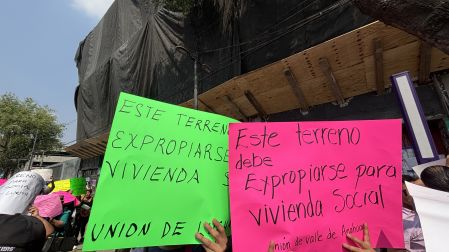 ESTE TERRENO
EXPROPIARSE
VIVIENDA
UNION DE
Este terreno
debe
Expropiarse para
vivienda Social
Unión de valle de